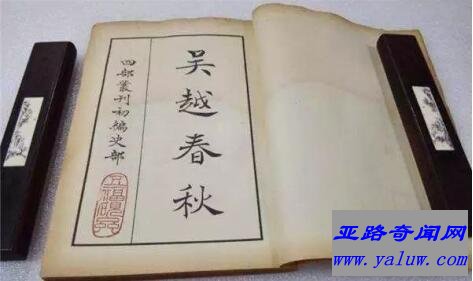 吴越春秋
四部叢刊初编史部
亚路奇闻网
www.yaluw.com